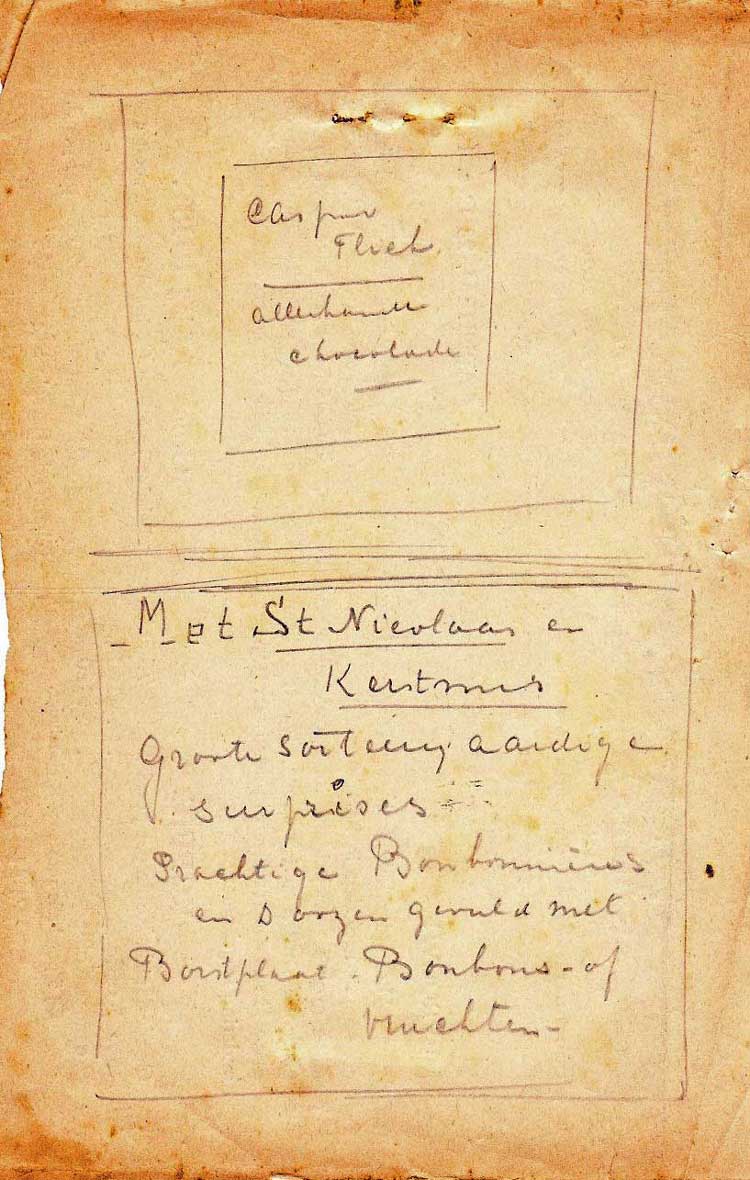 Caspar
Flick
allerhande
chocolade
Met St Nicolaas en
Kerstmis
Groote sorteering aardige
surprises
Prachtige Bonbonnières
en Doozen gevuld met
Borstplaat - Bonbons - of
vruchten -